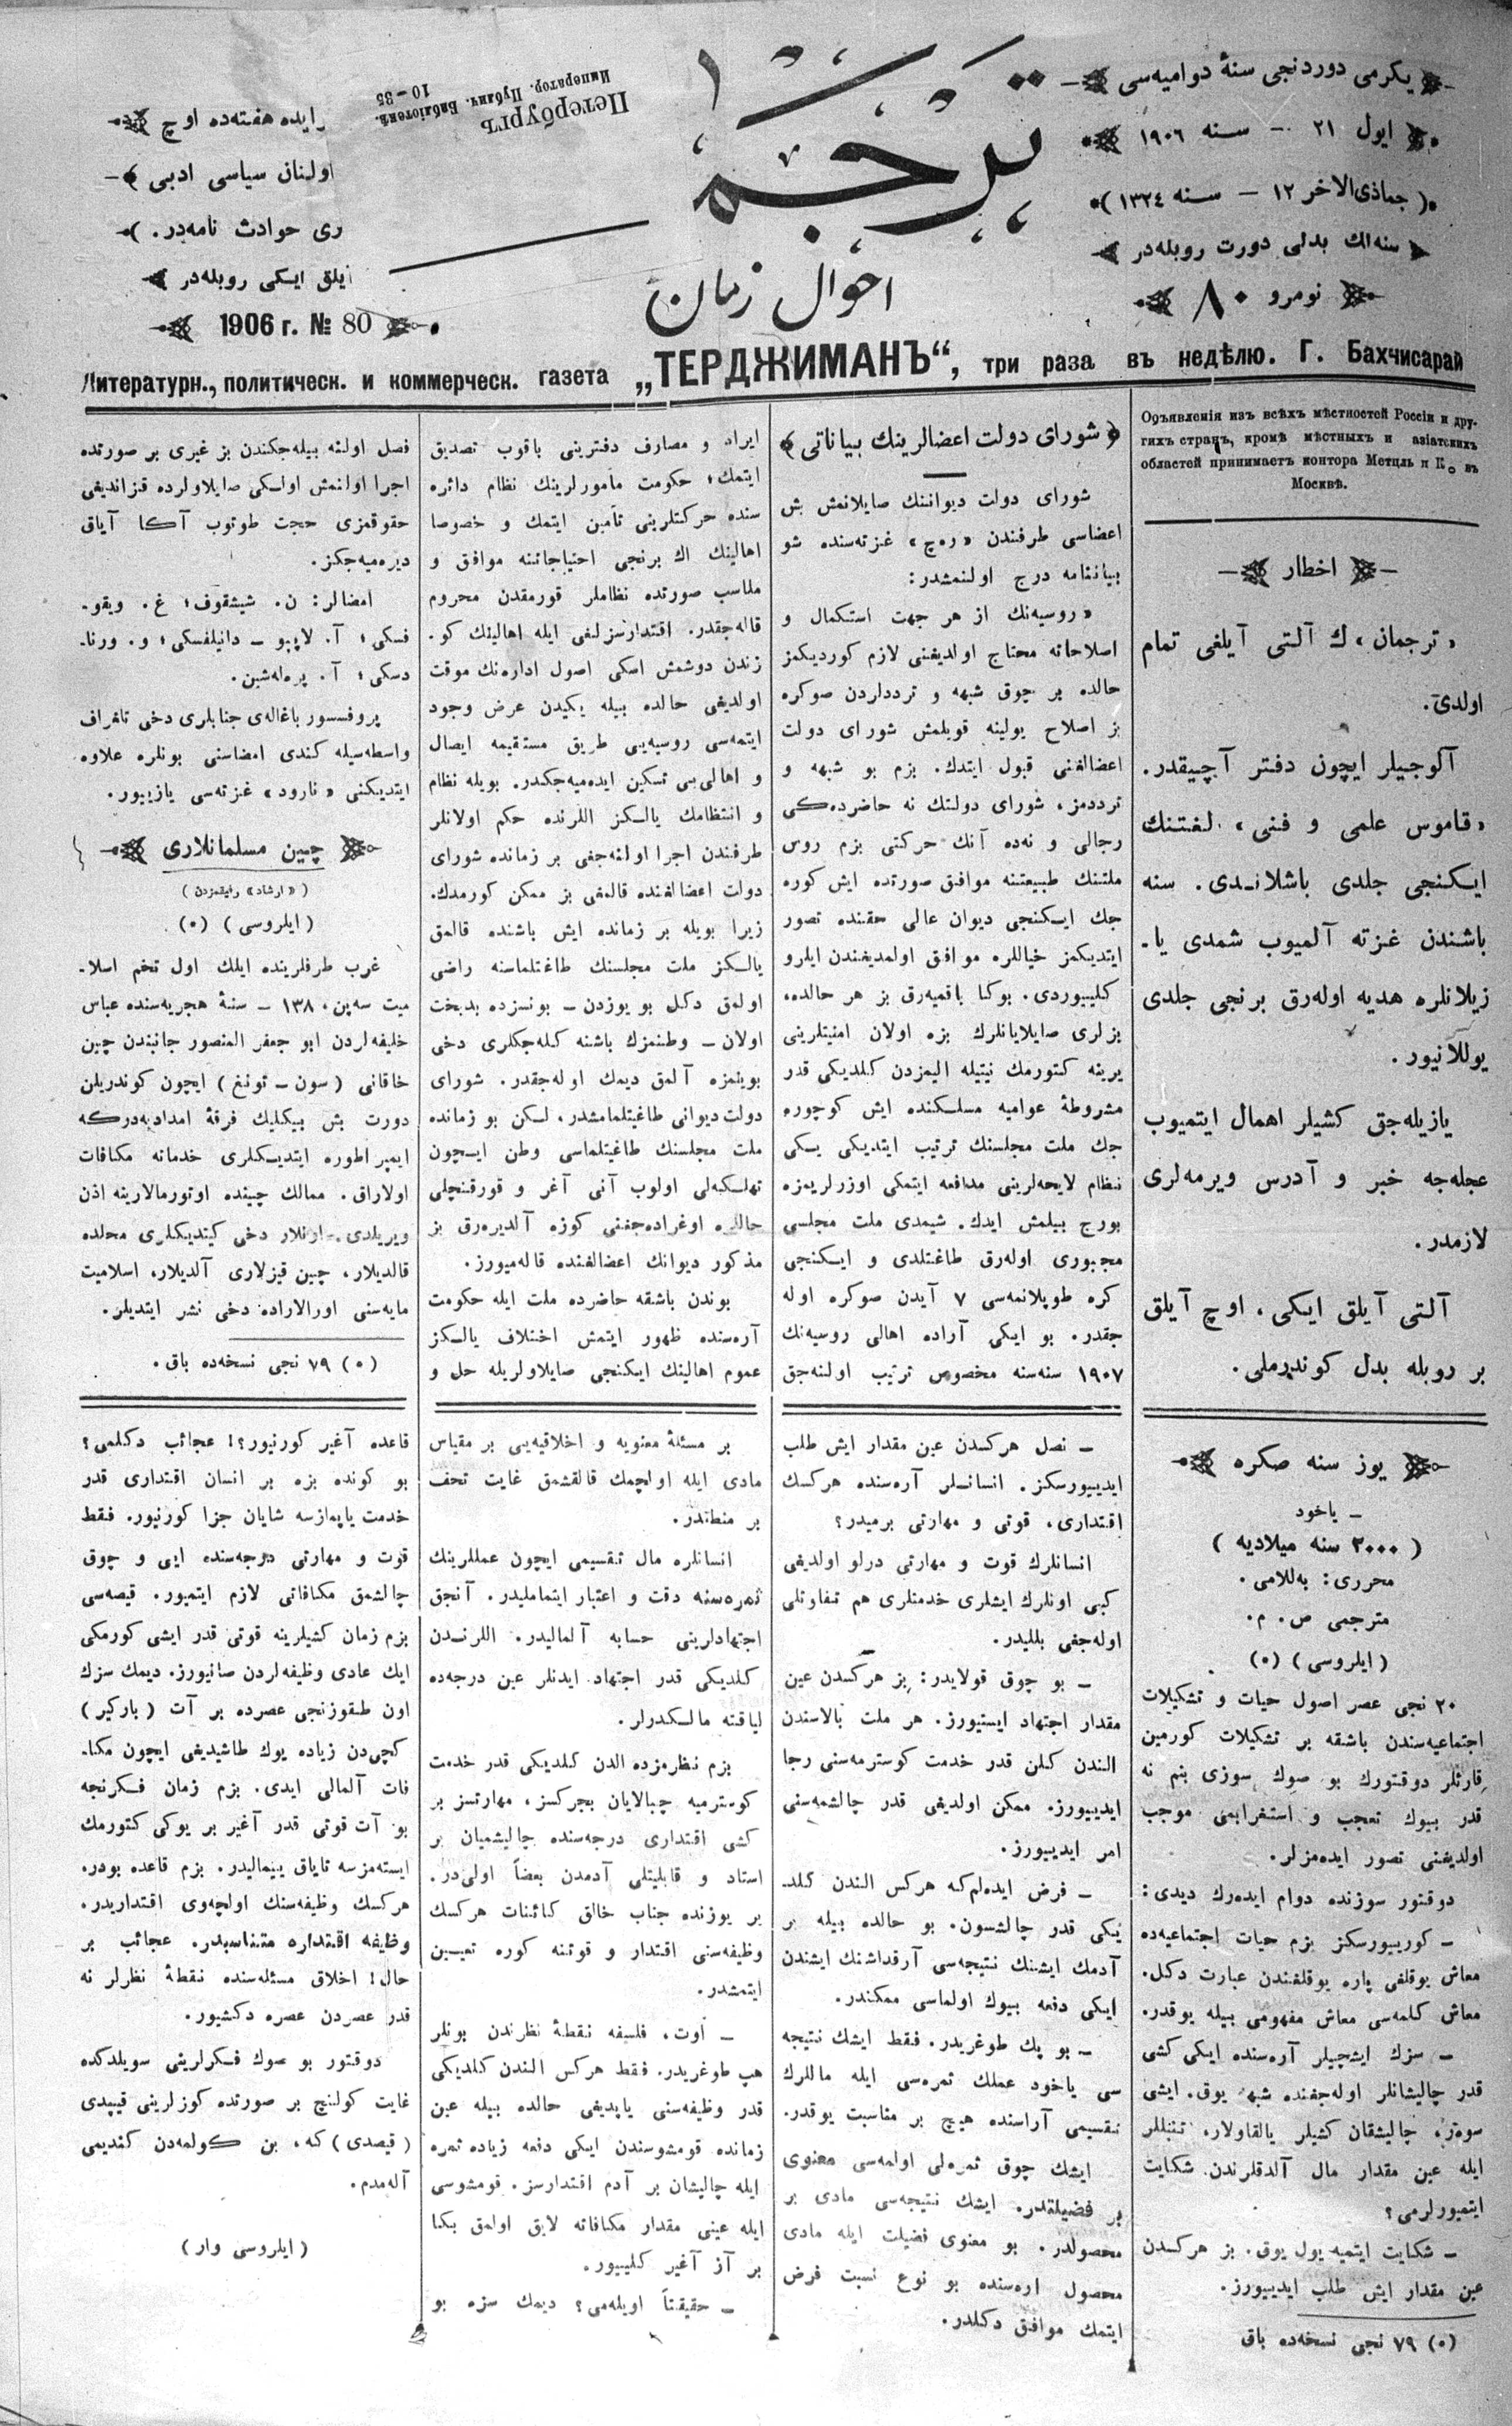 يكرمى دوردنجى سنۀ دواميه‌سى
ايول ٢١ — سنه ١٩٠٦
(جماذى‌الاخر ١٢ — سنه ١٣٢٤)
سنه‌لك بدلى دورت روبله‌در
نومرو ٨٠
ترجمان
احوال زمان
Петербургъ
Император. Публич. Библіотекѣ.
10—35
رايده هفته‌ده اوچ
اولنان سياسى ادبى
رى حوادث نامه‌در.
ايلق ايكى روبله‌در
1906 г. № 80
Литературн., политическ. и коммерческ. газета „ТЕРДЖИМАНЪ“, три раза въ недѣлю. Г. Бахчисарай
Объявленія изъ всѣхъ мѣстностей Россіи и дру-
гихъ странъ, кромѣ мѣстныхъ и азіатскихъ
областей принимаетъ контора Метцль и Ко въ
Москвѣ.
اخطار
«ترجمان»ك آلتى آيلغى تمام
اولدى.
آلوجيلر ايچون دفتر آچيقدر.
«قاموس علمى و فنى» لغتنك
ايكنجى جلدى باشلاندى. سنه
باشندن غزته آلميوب شمدى يا-
زيلانلره هديه اوله‌رق برنجى جلدى
يوللانيور.
يازيله‌جق كشيلر اهمال ايتميوب
عجله‌جه خبر و آدرس ويرمه‌لرى
لازمدر.
آلتى آيلق ايكى، اوچ آيلق
بر روبله بدل كوندرملى.
﴿ شوراى دولت اعضالرينك بياناتى ﴾
شوراى دولت ديواننك صايلانمش بش
اعضاسى طرفندن «رەچ» غزته‌سنده شو
بياننامه درج اولنمشدر:
«روسيه‌نك از هر جهت استكمال و
اصلاحاته محتاج اولديغنى لازم كورديكمز
حالده بر چوق شبهه و ترددلردن صوكره
بز اصلاح يولينه قويلمش شوراى دولت
اعضالغنى قبول ايتدك. بزم بو شبهه و
ترددمز، شوراى دولتك نه حاضرده‌كى
رجالى و نه‌ده آنك حركتى بزم روس
ملتنك طبيعتنه موافق صورتده ايش كوره
جك ايكنجى ديوان عالى حقنده تصور
ايتديكمز خياللره موافق اولمديغندن ايلرو
كليوردى. بوكا باقميه‌رق بز هر حالده،
بزلرى صايلايانلرك بزه اولان امنيتلرينى
يرينه كتورمك نيتيله اليمزدن كلديكى قدر
مشروطۀ عواميه مسلكنده ايش كوچوره
جك ملت مجلسنك ترتيب ايتديكى يكى
نظام لايحه‌لرينى مدافعه ايتمكى اوزرلريمزه
بورج بيلمش ايدك. شيمدى ملت مجلسى
مجبورى اوله‌رق طاغتلدى و ايكنجى
كره طوپلانمه‌سى ٧ آيدن صوكره اوله
جقدر. بو ايكى آراده اهالى روسيه‌نك
١٩٠٧ سنه‌سنه مخصوص ترتيب اولنه‌جق
ايراد و مصارف دفترينى باقوب تصديق
ايتمك؛ حكومت مأمورلرينك نظام دائره
سنده حركتلرينى تأمين ايتمك و خصوصا
اهالينك اك برنجى احتياجاتنه موافق و
مناسب صورتده نظاملر قورمقدن محروم
قاله‌جقدر. اقتدارسزلغى ايله اهالينك كو-
زندن دوشمش اسكى اصول اداره‌نك موقت
اولديغى حالده بيله يكيدن عرض وجود
ايتمه‌سى روسيه‌يى طريق مستقيمه ايصال
و اهالى‌يى تسكين ايده‌ميه‌جكدر. بويله نظام
و انتظامك يالكز اللرنده حكم اولانلر
طرفندن اجرا اولنه‌جغى بر زمانده شوراى
دولت اعضالغنده قالمغى بز ممكن كورمدك.
زيرا بويله بر زمانده ايش باشنده قالمق
يالكز ملت مجلسنك طاغتلماسنه راضى
اولمق دكل بو يوزدن — بونسزده بدبخت
اولان — وطنمزك باشنه كله‌جكلرى دخى
بوينمزه آلمق ديمك اوله‌جقدر. شوراى
دولت ديوانى طاغيتلمامشدر، لكن بو زمانده
ملت مجلسنك طاغيتلماسى وطن ايچون
تهلكه‌لى اولوب آنى آغر و قورقنچلى
حاللره اوغراده‌جغنى كوزه آلديره‌رق بز
مذكور ديوانك اعضالغنده قاله‌ميورز.
بوندن باشقه حاضرده ملت ايله حكومت
آره‌سنده ظهور ايتمش اختلاف يالكز
عموم اهالينك ايكنجى صايلاولريله حل و
فصل اولنه بيله‌جكندن بز غيرى بر صورتده
اجرا اولنمش اولكى صايلاولرده قزانديغى
حقوقمزى حجت طوتوب آكا آياق
ديره‌ميه‌جكز.
امضالر: ن. شيشقوف؛ غ. ويقو-
فسكى؛ آ. لاپپو — دانيلفسكى؛ و. ورنا-
دسكى؛ آ. پره‌له‌شين.
پروفسسور باغاله‌ى جنابلرى دخى تلغراف
واسطه‌سيله كندى امضاسنى بونلره علاوه
ايتديكنى «نارود» غزته‌سى يازييور.
چين مسلمانلارى
(«ارشاد» رفيقمزدن)
(ايلروسى) (٥)
غرب طرفلرينده ايلك اول تخم اسلا-
ميت سه‌پن، ١٣٨ — سنۀ هجريه‌سنده عباس
خليفه‌لردن ابو جعفر المنصور جانبندن چين
خاقانى (سون — تونغ) ايچون كوندريلن
دورت بش بيكليك فرقۀ امداديه‌دركه
ايمپراطوره ايتديكلرى خدمانه مكافات
اولاراق. ممالك چينده اوتورمالارينه اذن
ويريلدى. اونلار دخى كيتديكلرى محلده
قالديلار، چين قيزلارى آلديلار، اسلاميت
مايه‌سنى اورالاراده دخى نشر ايتديلر.
(٥) ٧٩ نجى نسخه‌ده باق.
يوز سنه صكره
— ياخود
(٢٠٠٠ سنه ميلاديه)
محررى: به‌للامى.
مترجمى ص. م.
(ايلروسى) (٥)
٢٠ نجى عصر اصول حيات و تشكيلات
اجتماعيه‌سندن باشقه بر تشكيلات كورمين
قارئلر دوقتورك بو صوك سوزى بنم نه
قدر بيوك تعجب و استغرابمى موجب
اولديغنى تصور ايده‌مزلر.
دوقتور سوزنده دوام ايده‌رك ديدى:
— كورييورسكز بزم حيات اجتماعيه‌ده
معاش يوقلغى پاره يوقلغندن عبارت دكل.
معاش كلمه‌سى معاش مفهومى بيله يوقدر.
— سزك ايشچيلر آره‌سنده ايكى كشى
قدر چاليشانلر اوله‌جغنده شبهه يوق. ايشى
سوه‌ز، چاليشقان كشيلر يالقاولار، تنبللر
ايله عين مقدار مال آلدقلرندن شكايت
ايتميورلرمى؟
— شكايت ايتميه يول يوق. بز هركسدن
عين مقدار ايش طلب ايدييورز.
(٥) ٧٩ نجى نسخه‌ده باق
— نصل هركسدن عين مقدار ايش طلب
ايدييورسكز. انسانلر آره‌سنده هركسك
اقتدارى، قوتى و مهارتى برميدر؟
انسانلرك قوت و مهارتى درلو اولديغى
كبى اونلرك ايشلرى خدمتلرى هم تفاوتلى
اوله‌جغى بلليدر.
— بو چوق قولايدر: بز هركسدن عين
مقدار اجتهاد ايستيورز. هر ملت بالاسندن
الندن كلن قدر خدمت كوسترمه‌سنى رجا
ايدييورز. ممكن اولديغى قدر چالشمه‌سنى
امر ايدييورز.
— فرض ايده‌لم‌كه هركس الندن كلد-
يكى قدر چالشسون. بو حالده بيله بر
آدمك ايشنك نتيجه‌سى آرقداشنك ايشندن
ايكى دفعه بيوك اولماسى ممكندر.
— بو پك طوغريدر. فقط ايشك نتيجه
سى ياخود عملك ثمره‌سى ايله ماللرك
تقسيمى آراسنده هيچ بر مناسبت يوقدر.
ايشك چوق ثمره‌لى اولمه‌سى معنوى
بر فضيلتدر. ايشك نتيجه‌سى مادى بر
محصولدر. بو معنوى فضيلت ايله مادى
محصول اره‌سنده بو نوع نسبت فرض
ايتمك موافق دكلدر.
بر مسئلۀ معنويه و اخلاقيه‌يى بر مقياس
مادى ايله اولچمك قالقشمق غايت تحف
بر منطاندر.
انسانلره مال تقسيمى ايچون عمللرينك
ثمره‌سنه دقت و اعتبار ايتمامليدر. آنجق
اجتهادلرينى حسابه آلماليدر. اللرندن
كلديكى قدر اجتهاد ايدنلر عين درجه‌ده
لياقته مالكدرلر.
بزم نظرمزده الدن كلديكى قدر خدمت
كوسترميه چبالايان بجركسز، مهارتسز بر
كشى اقتدارى درجه‌سنده چاليشميان بر
استاد و قابليتلى آدمدن بعضاً اولى‌در.
ير يوزنده جناب خالق كائنات هركسك
وظيفه‌سنى اقتدار و قوتنه كوره تعيين
ايتمشدر.
— اوت، فلسفه نقطۀ نظرندن بونلر
هپ طوغريدر. فقط هركس الندن كلديكى
قدر وظيفه‌سنى ياپديغى حالده بيله عين
زمانده قومشوسندن ايكى دفعه زياده ثمره
ايله چاليشان بر آدم اقتدارسز. قومشوسى
ايله عينى مقدار مكافاته لايق اولمق بكا
بر آز آغير كلييور.
— حقيقتاً اويله‌مى؟ ديمك سزه بو
قاعده آغير كورنيور؟! عجائب دكلمى؟
بو كونده بزه بر انسان اقتدارى قدر
خدمت ياپمازسه شايان جزا كورنيور. فقط
قوت و مهارتى درجه‌سنده ايى و چوق
چالشمق مكافاتى لازم ايتميور. قيصه‌سى
بزم زمان كشيلرينه قوتى قدر ايشى كورمكى
ايك عادى وظيفه‌لردن صانيورز. ديمك سزك
اون طقوزنجى عصرده بر آت (باركير)
كچى‌دن زياده يوك طاشيديغى ايچون مكا-
فات آلمالى ايدى. بزم زمان فكرنجه
بو آت قوتى قدر آغير بر يوكى كتورمك
ايسته‌مزسه تاياق ييماليدر. بزم قاعده بودر.
هركسك وظيفه‌سنك اولچه‌وى اقتداريدر.
وظيفه اقتداره متناسبدر. عجائب بر
حال! اخلاق مسئله‌سنده نقطۀ نظرلر نه
قدر عصردن عصره دكشيور.
دوقتور بو صوك فكرلرينى سويلدكده
غايت كولنچ بر صورتده كوزلرينى قيپدى
(قيصدى) كه، بن كولمه‌دن كنديمى
آله‌مدم.
(ايلروسى وار)